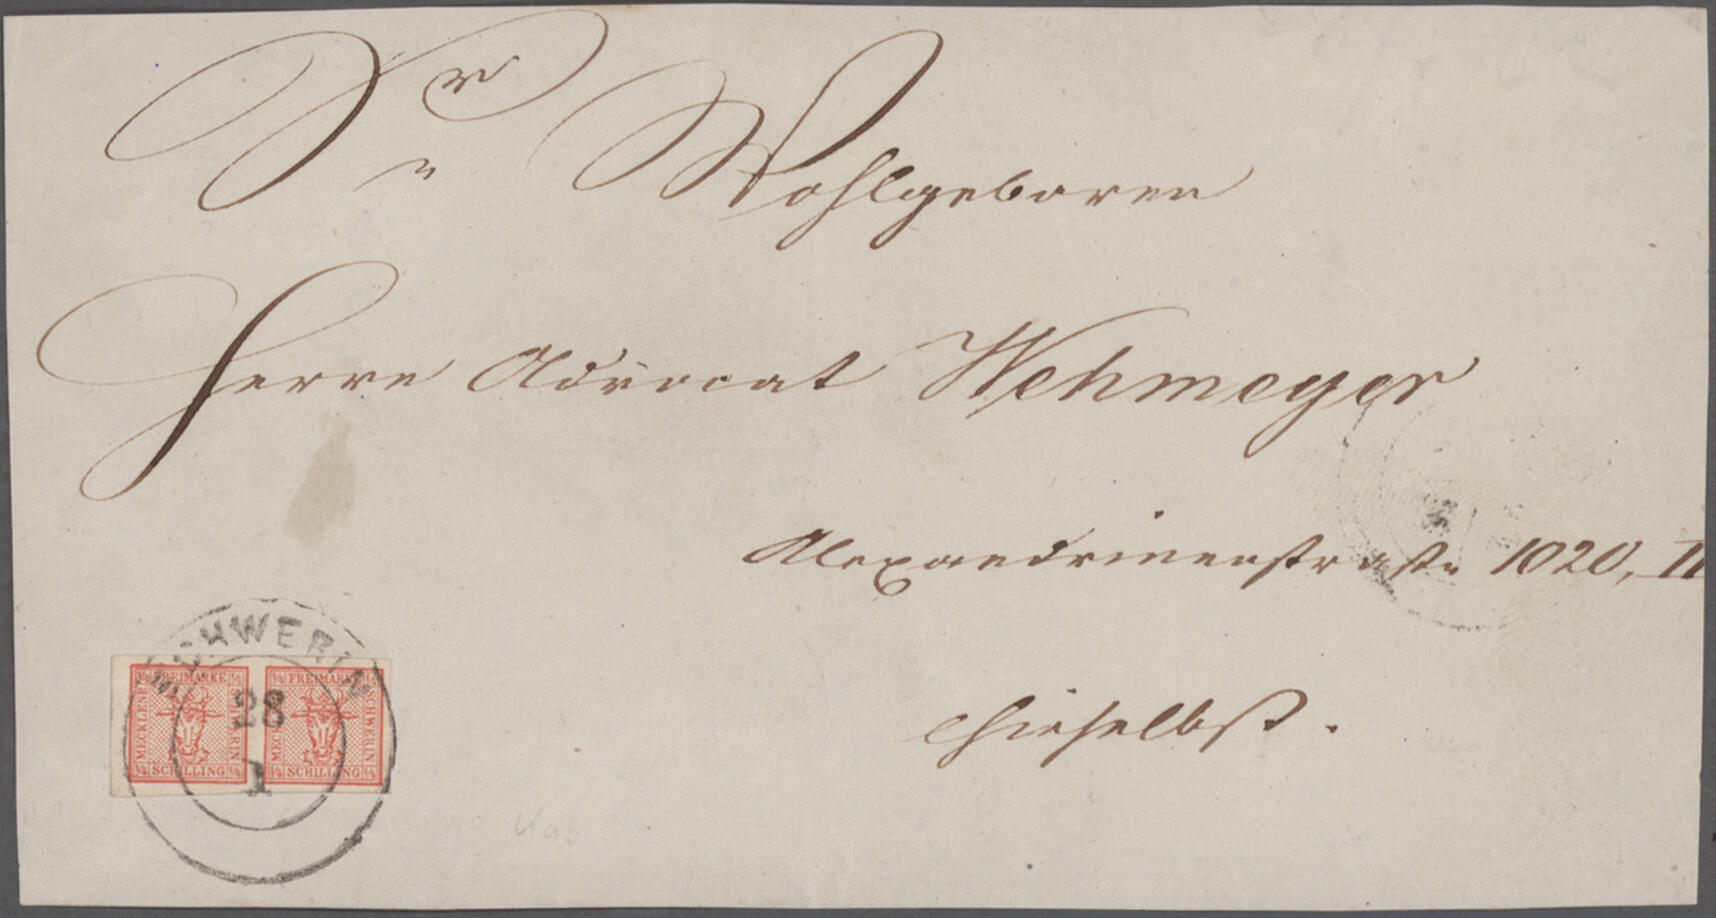 Sr Wohlgeboren
Herrn Advocat Wehmeyer
Alexandrinenstraße 1020, II
hieselbst.
SCHWERIN
28
1
¼ FREIMARKE ¼
MECKLENB.
SCHWERIN
¼ SCHILLING ¼
¼ FREIMARKE ¼
MECKLENB.
SCHWERIN
¼ SCHILLING ¼